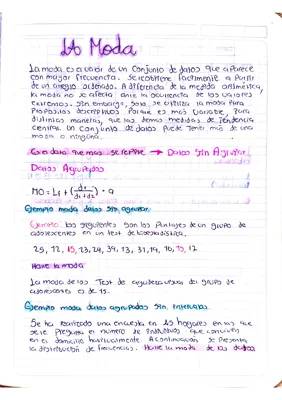 La Moda
La moda, es el valor de un conjunto de datos que aparece
con mayor frecuencia. Se obtiene facilmente a partir
de un arreglo ordenado. A diferencia de la media aritmética,
la moda no se afecta ante la ocurrencia de los valores
extremos. Sin embargo, solo se utiliza la moda para
Propositos descriptivos porque es más variable, para
distintas muestras, que las demas medidas de tendencia
central. Un conjunto de datos puede tener más de una
moda o ninguna.
Es el dato que mas se repite → Datos Sin Agrupar
Datos Agrupados
MO = Li + (d1 / d1 + d2) · a
Ejemplo moda datos sin agrupar
Ejemplo los siguientes son los puntajes de un grupo de
adolescentes en un test de
25, 12, 15, 23, 24, 39, 13, 31, 19, 16, 15, 12
Halle la moda
La moda de los Test de del grupo de
adolescentes es de 15.
Ejemplo moda datos agrupados Sin Intervalos.
Se ha realizado una encuesta en 25 hogares en los que
se le pregunta el número de individuos que conviven
en el domicilio habitualmente A continuación se presenta
la distribución de frecuencias. Halle la moda de los datos